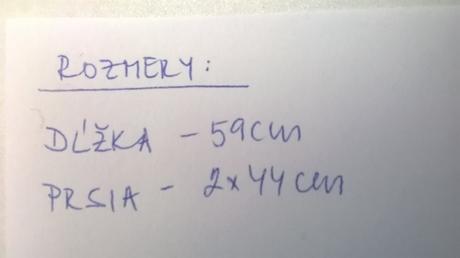 ROZMERY:
DĹŽKA - 59cm
PRSIA - 2x44cm